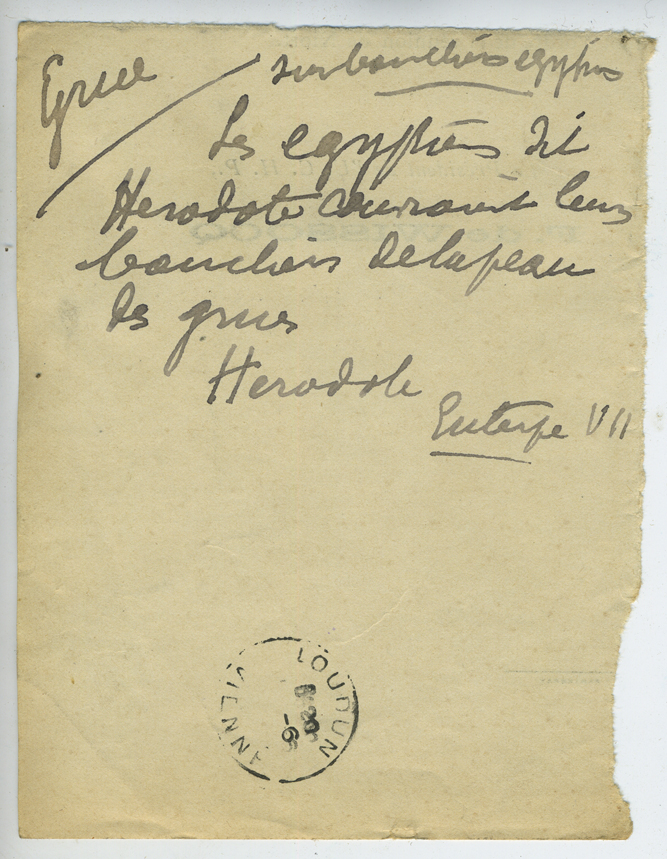 Grue
sur boucliers egyptiens
Les egyptiens dit
Herodote couvraient leurs
boucliers de la peau
des grues
Herodote
Euterpe VII
LOUDUN
VIENNE